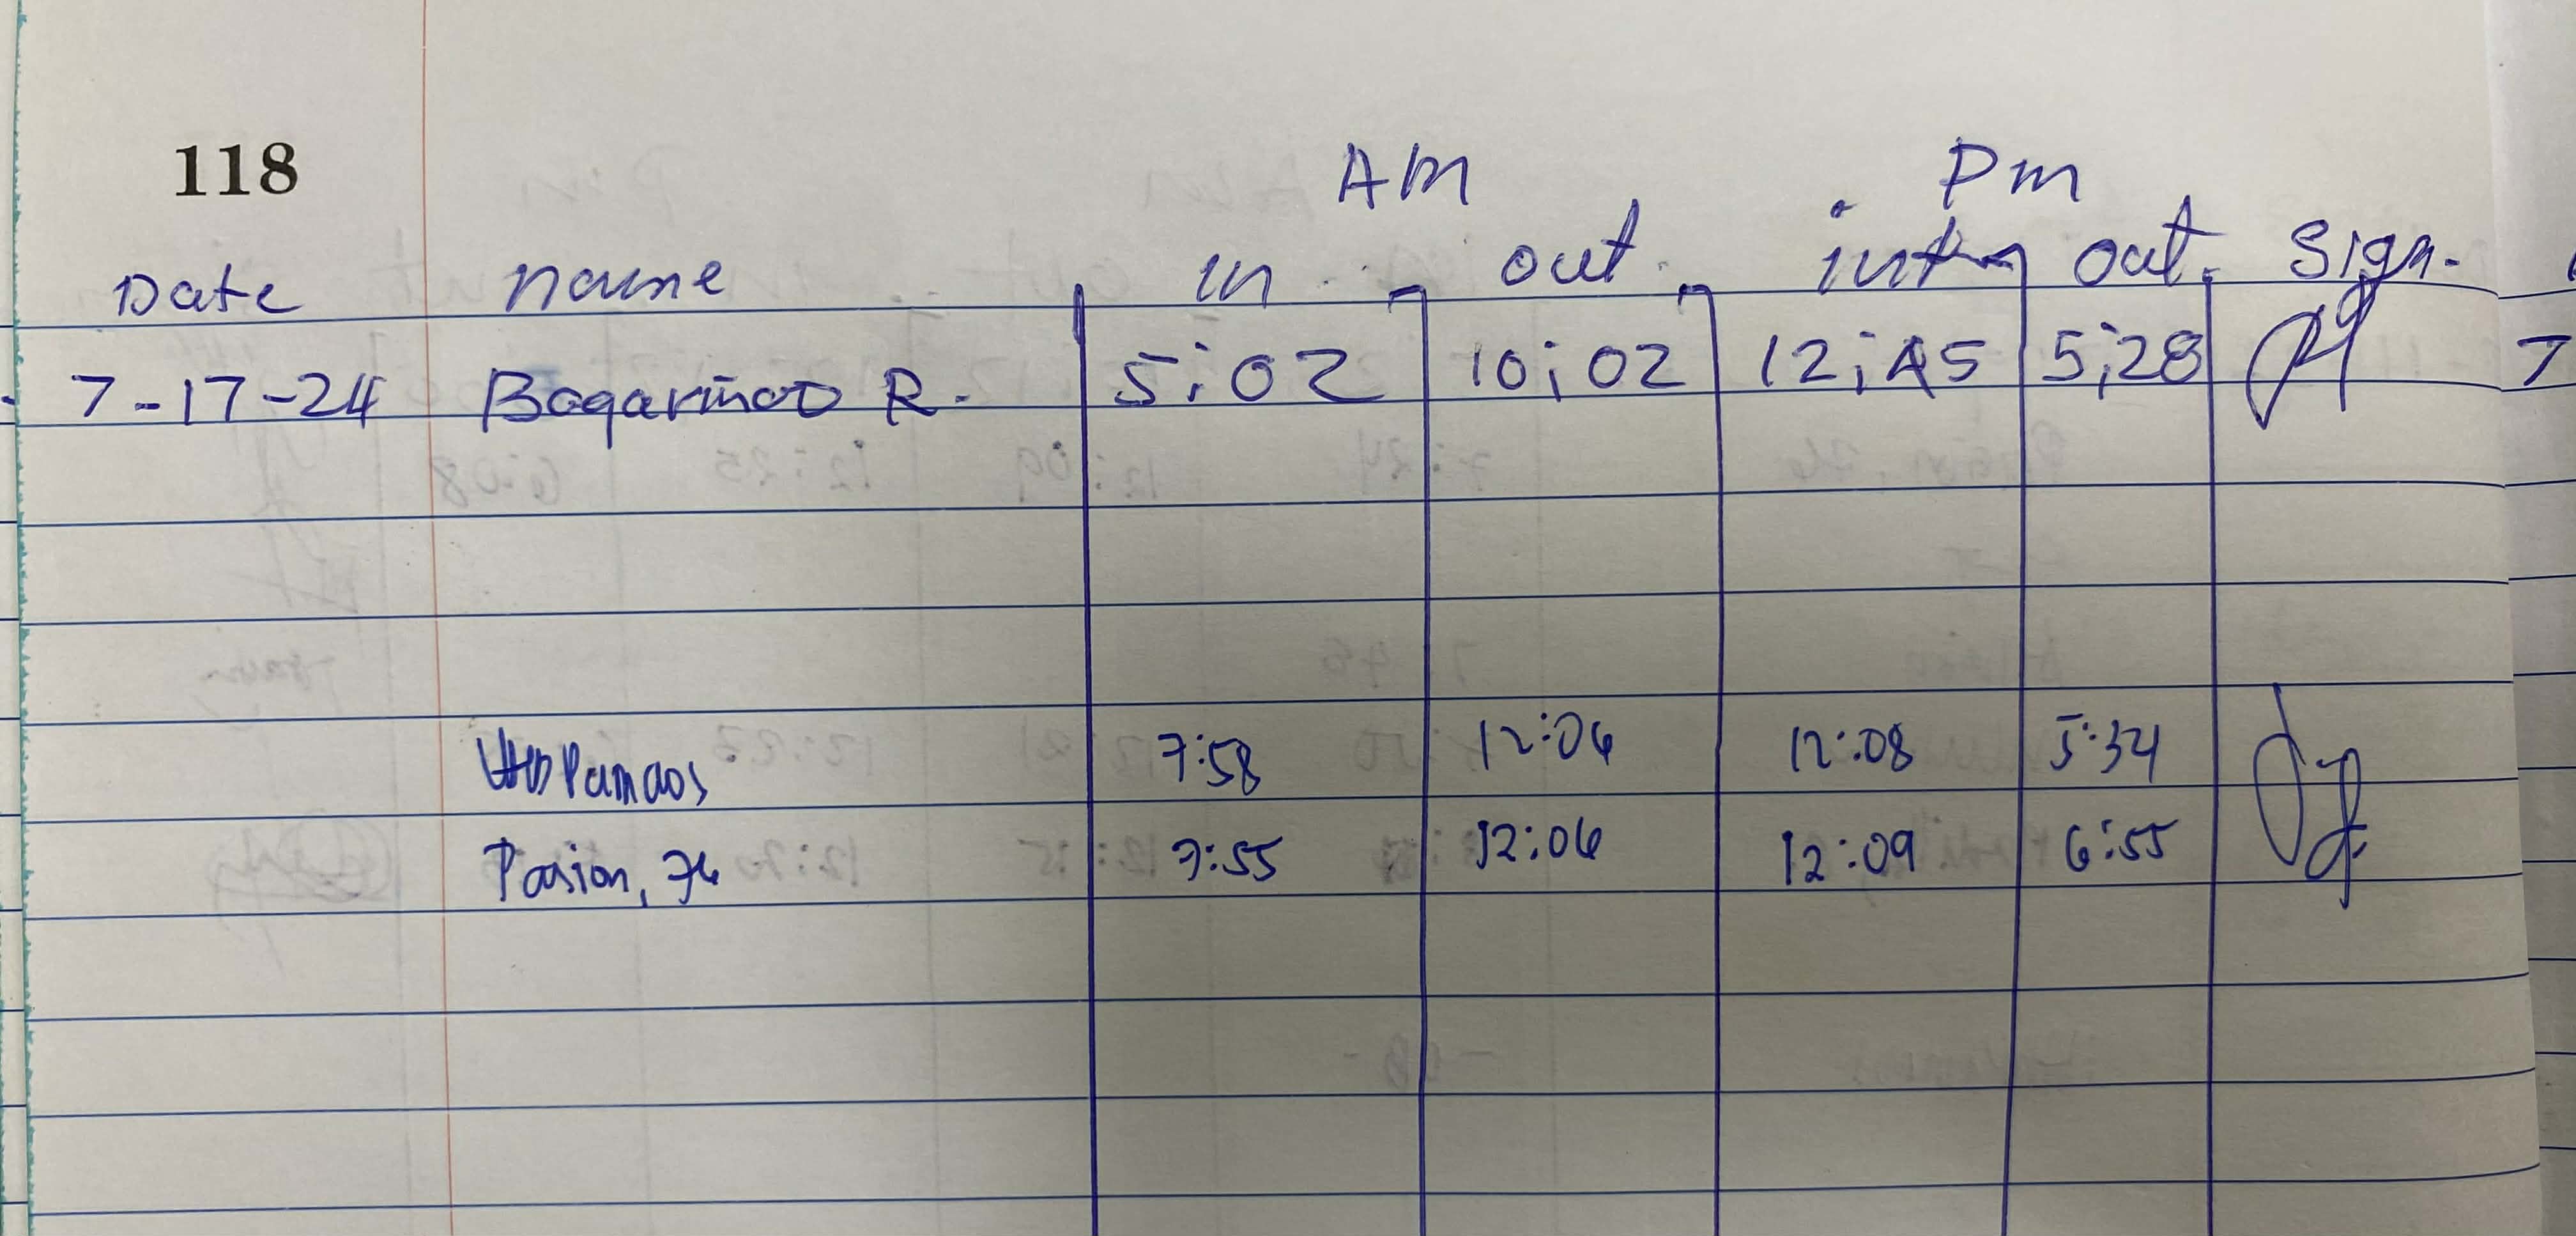 118
AM Pm
Date name in out out Sign.
7-17-24 Bagariñao R. 5:02 10:02 12:45 5:28
Pamaos 7:58 12:06 12:08 5:34
Pasion, 7:55 12:06 12:09 6:55
7